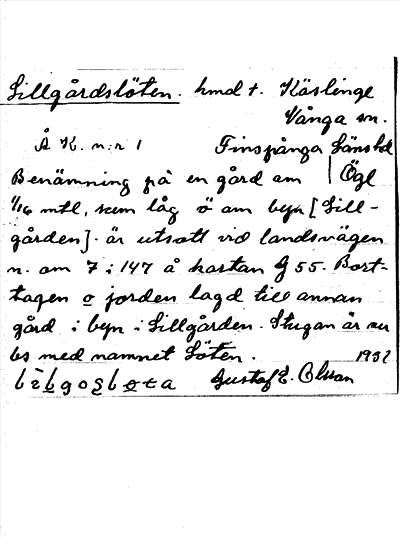 Lillgårdslöten. hmd t. Käslinge
Vånga sn.
Å K. n:r 1 Finspånga länshd
Benämning på en gård om | Ögl
1/16 mtl, som låg ö om byn [Lill-
gården]. är utsatt vid landsvägen
n. om 7 i 147 å kartan G 55. Bort-
tagen o jorden lagd till annan
gård i byn i Lillgården. Stugan är nu
bs med namnet Löten. 1932
Gustaf E. Olsson